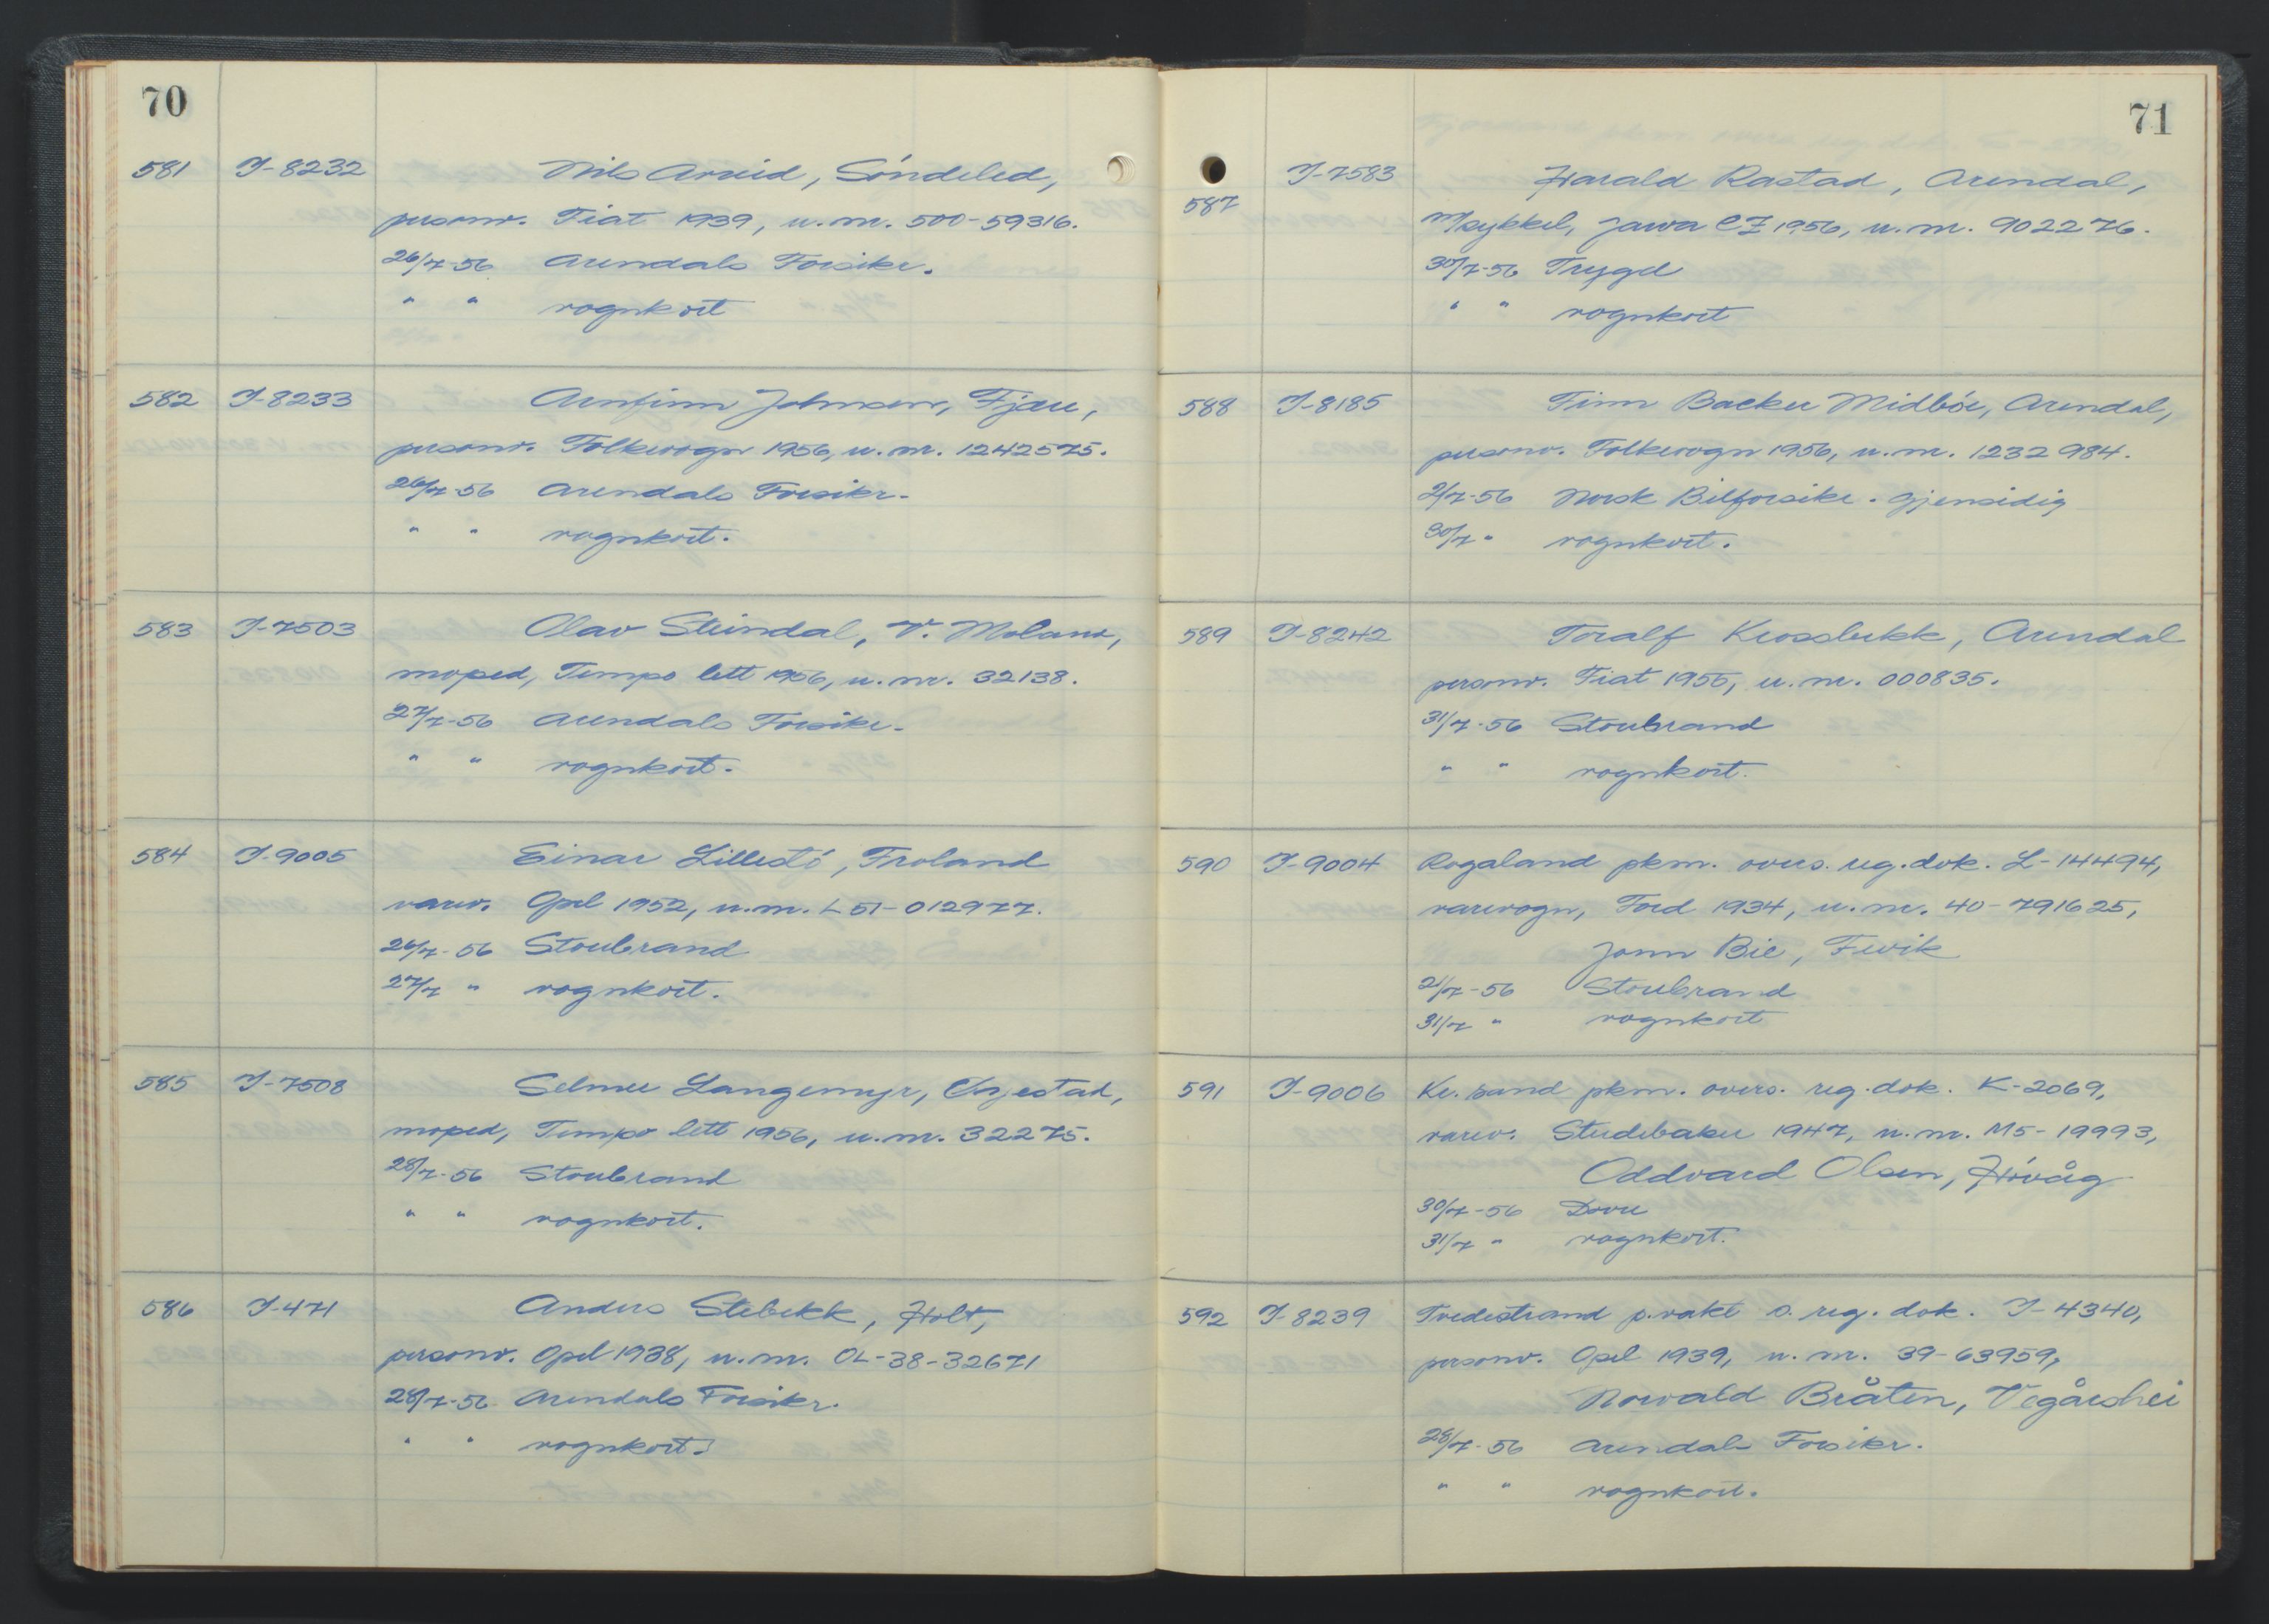 70
581 I-8232 Nils Arvid, Söndeled,
personv. Fiat 1939, u.m. 500-59316.
26/7-56 Arendals Forsikr.
" " vognkort
582 I-8233 Arnfinn Johnsen, Fjære,
personv. Folkevogn 1956, u.m. 1242575.
26/7-56 Arendals Forsikr.
" " vognkort.
583 I-7503 Olav Steindal, V. Moland,
moped, Tempo lett 1956, u.m. 32138.
27/7-56 Arendals Forsikr.
" " vognkort.
584 I-9005 Einar Lillestö, Froland
varev. Opel 1952, u.m. L51-012977.
26/7-56 Storebrand
27/7 " vognkort.
585 I-7508 Selmer Langemyr, Öyestad,
moped, Tempo lett 1956, u.m. 32275.
28/7-56 Storebrand
" " vognkort.
586 I-471 Anders Stebekk, Holt,
personv. Opel 1938, u.m. OL-38-32671
28/7-56 Arendals Forsikr.
" " vognkort.
71
587 I-7583 Harald Rastad, Arendal,
m/sykkel, Jawa CZ 1956, u.m. 902276.
30/7-56 Trygd
" " vognkort
588 I-8185 Finn Backer Midböe, Arendal,
personv. Folkevogn 1956, u.m. 1232984.
2/7-56 Norsk Bilforsikr. Gjensidig
30/7 " vognkort.
589 I-8242 Toralf Krossbekk, Arendal
personv. Fiat 1955, u.m. 000835.
31/7-56 Storebrand
" " vognkort.
590 I-9004 Rogaland pkm. overs. reg.dok. L-14494,
varevogn, Ford 1934, u.m. 40-791625,
Jonn Bie, Fevik
2/7-56 Storebrand
31/7 " vognkort
591 I-9006 Kr.sand pkm. overs. reg.dok. K-2069,
varev. Studebaker 1947, u.m. M5-19993,
Oddvard Olsen, Hövåg
30/7-56 Dovre
31/7 " vognkort.
592 I-8239 Tvedestrand p.vakt o. reg.dok. I-4340,
personv. Opel 1939, u.m. 39-63959,
Norvald Bråten, Vegårshei
28/7-56 Arendals Forsikr.
" " vognkort.